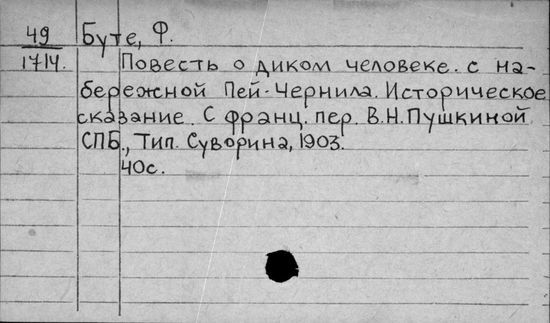 49 Буте, Ф.
1714. Повесть о диком человеке. с на-
бережной Пей-Чернила. Историческое
сказание. С франц. пер. В.Н. Пушкиной
СПБ., Тип. Суворина, 1903.
40с.